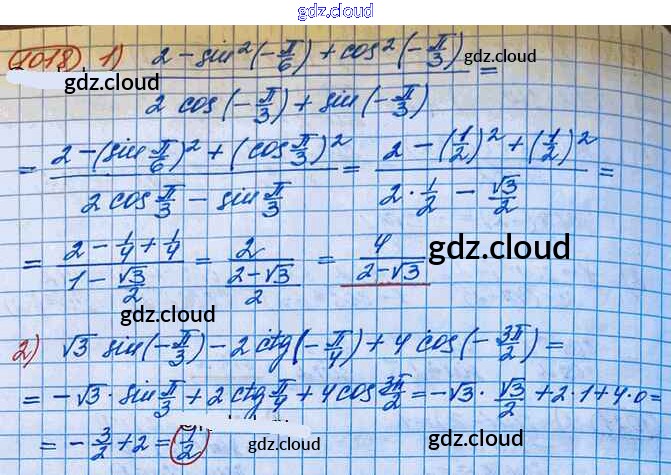 gdz.cloud
1018) 1) (2 - sin²(-π/6) + cos²(-π/3)) / (2 cos(-π/3) + sin(-π/3)) =
gdz.cloud gdz.cloud
= (2 - (sin π/6)² + (cos π/3)²) / (2 cos π/3 - sin π/3) = (2 - (1/2)² + (1/2)²) / (2 · 1/2 - √3/2) =
= (2 - 1/4 + 1/4) / (1 - √3/2) = 2 / ((2-√3)/2) = 4 / (2-√3)
gdz.cloud gdz.cloud
2) √3 sin(-π/3) - 2 ctg(-π/4) + 4 cos(-3π/2) =
= -√3 · sin π/3 + 2 ctg π/4 + 4 cos 3π/2 = -√3 · √3/2 + 2·1 + 4·0 =
= - 3/2 + 2 = 1/2
gdz.cloud gdz.cloud